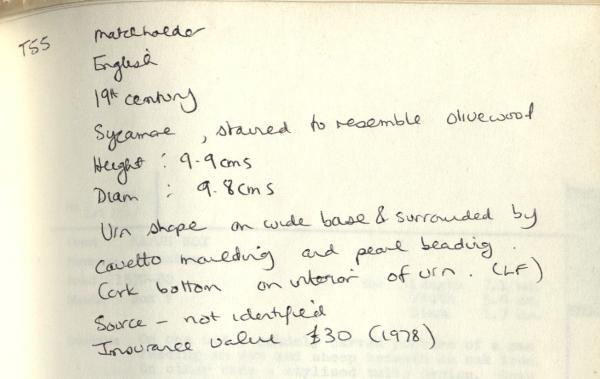 T55
Matchholder
English
19th century
Sycamore, stained to resemble olivewood
Height : 9.9cms
Diam : 9.8cms
Urn shape on wide base & surrounded by
cavetto moulding and pearl beading.
Cork bottom on interior of urn. (LF)
Source - not identified
Insurance value £30 (1978)